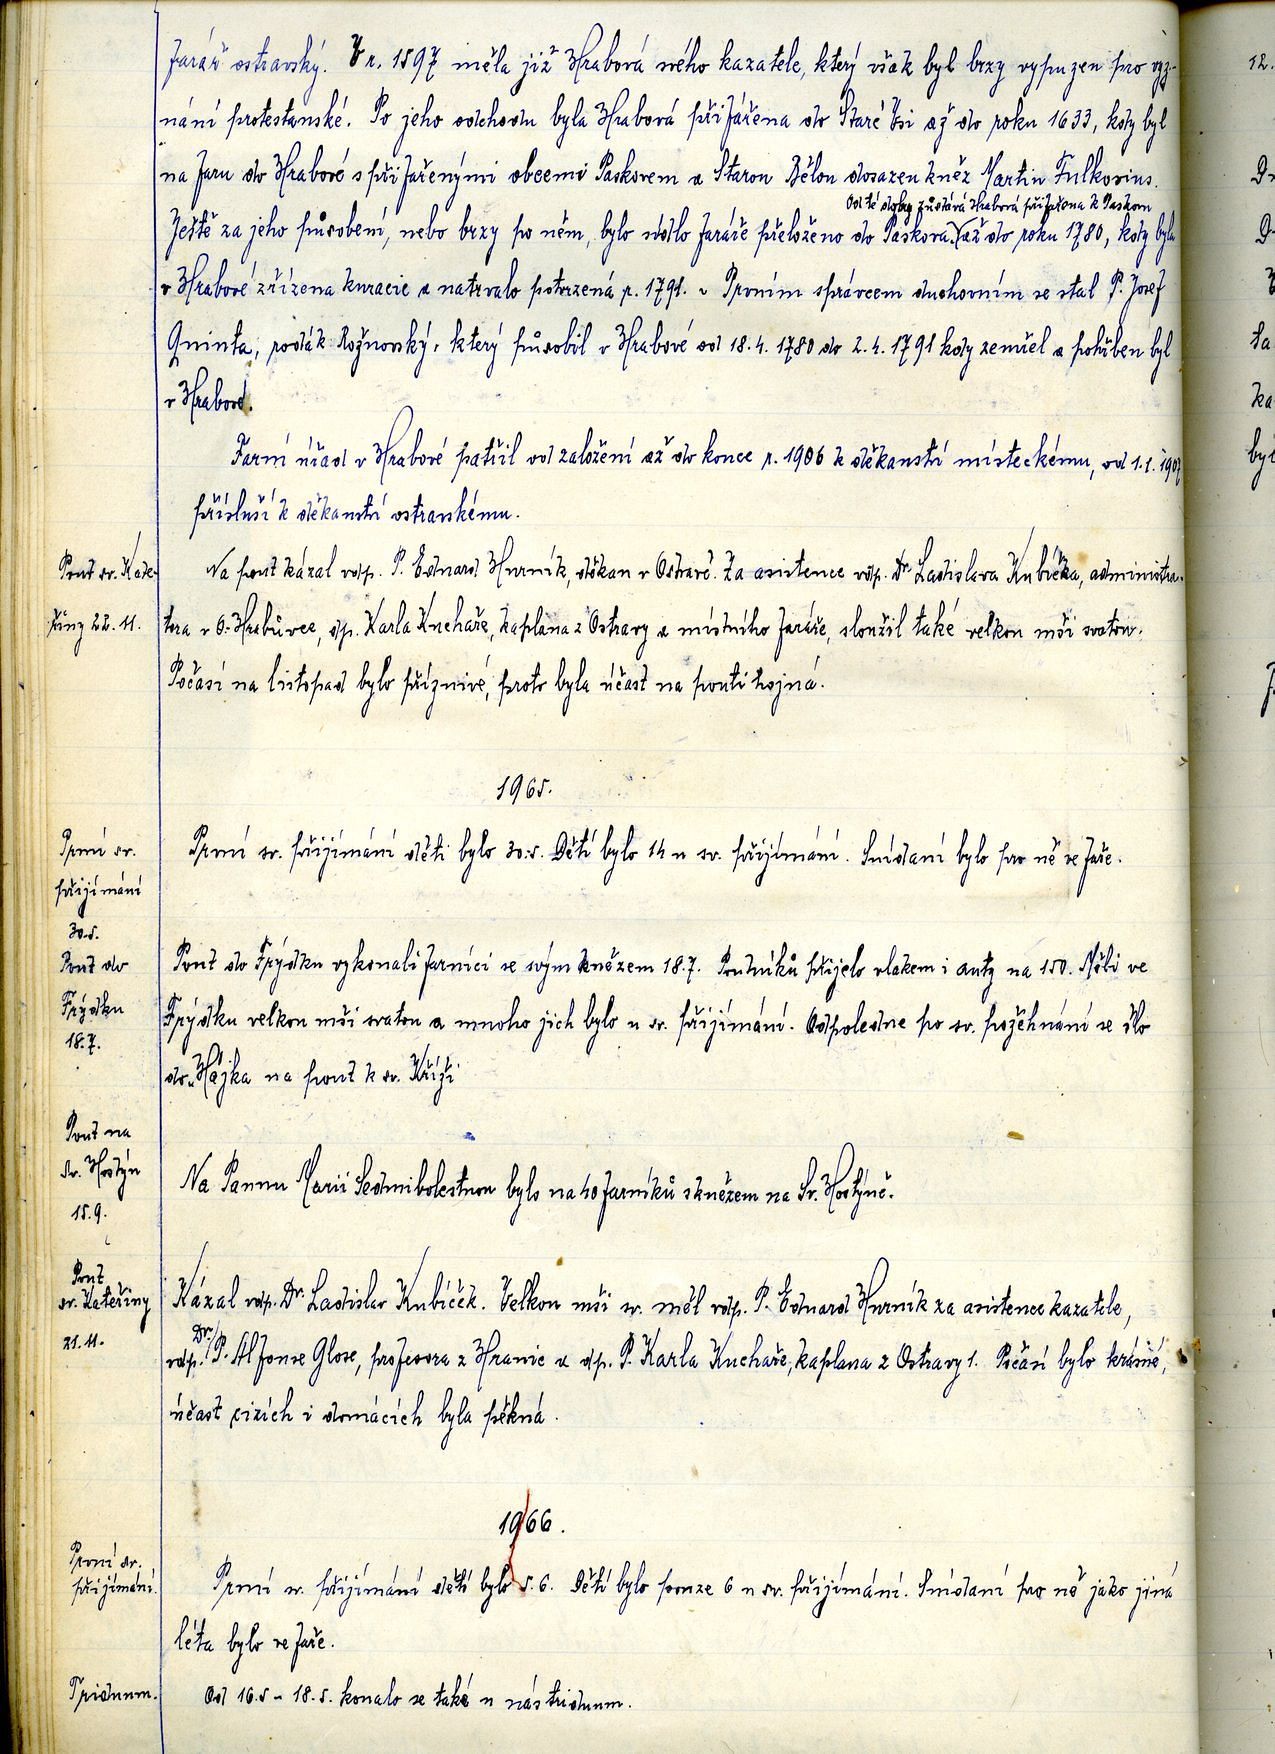 farář ostravský. V r. 1597 měla již Hrabová svého kazatele, který však byl brzy vypuzen pro vyz-
nání protestanské. Po jeho odchodu byla Hrabová přifařena do Staré Vsi až do roku 1633, kdy byl
na faru do Hrabové s přifařenými obcemi Paskovem a Starou Bělou dosazen kněz Martin Fulkovius.
Od té doby zůstává Hrabová přifařena k Paskovu
Ještě za jeho působení, nebo brzy po něm, bylo sídlo faráře přeloženo do Paskova. (až do roku 1780, kdy byla
v Hrabové zřízena kuracie a natrvalo potvrzená r. 1791. Prvním správcem duchovním se stal P. Josef
Quinta, rodák Rožnovský, který působil v Hrabové od 18.4. 1780 do 2.4. 1791 kdy zemřel a pohřben byl
v Hrabové.
Farní úřad v Hrabové patřil od založení až do konce r. 1906 k děkanství místeckému, od 1.1. 1907
přísluší k děkanství ostravskému.
Pouť sv. Kate-
řiny 22.11.
Na pouť kázal vdp. P. Eduard Hurník, děkan v Ostravě. Za asistence vdp. Dr Ladislava Kubíčka, administra-
tora v O.-Hrabůvce, dp. Karla Kuchaře, kaplana z Ostravy a místního faráře, sloužil také velkou mši svatou.
Počasí na listopad bylo příznivé, proto byla účast na pouti hojná.
1965.
První sv.
přijímání
30.5.
První sv. přijímání dětí bylo 30.5. Dětí bylo 14 u sv. přijímání. Snídaní bylo pro ně ve faře.
Pouť do
Frýdku
18.7.
Pouť do Frýdku vykonali farníci se svým knězem 18.7. Poutníků přijelo vlakem i auty na 150. Měli ve
Frýdku velkou mši svatou a mnoho jich bylo u sv. přijímání. Odpoledne po sv. požehnání se šlo
do „Hájka na pouť k sv. Kříži
Pouť na
Sv. Hostýn
15.9.
Na Pannu Marii Sedmibolestnou bylo na 40 farníků s knězem na Sv. Hostýně.
Pouť
sv. Kateřiny
21.11.
Kázal vdp. Dr. Ladislav Kubíček. Velkou mši sv. měl vdp. P. Eduard Hurník za asistence kazatele,
vdp. Dr. P. Alfonse Glose, profesora z Hranic a dp. P. Karla Kuchaře, kaplana z Ostravy 1. Počasí bylo krásné,
účast cizích i domácích byla pěkná.
1966.
První sv.
přijímání.
První sv. přijímání dětí bylo 5.6. Dětí bylo pouze 6 u sv. přijímání. Snídaní pro ně jako jiná
léta bylo ve faře.
Triduum.
Od 16.5 - 18.5. konalo se také u nás triduum.
12.